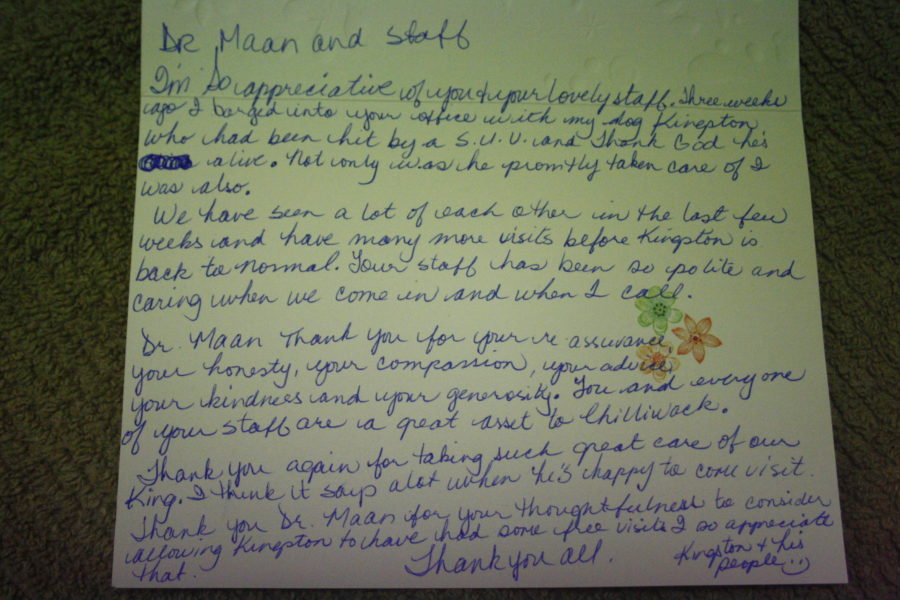 Dr Maan and staff
I'm so appreciative of you & your lovely staff. Three weeks
ago I barged into your office with my dog Kingston
who had been hit by a S.U.V. and Thank God he's
alive. Not only was he promtly taken care of I
was also.
We have seen a lot of each other in the last few
weeks and have many more visits before Kingston is
back to normal. Your staff has been so polite and
caring when we come in and when I call.
Dr. Maan Thank you for your re assurance,
your honesty, your compassion, your advice,
your kindness and your generosity. You and everyone
of your staff are a great asset to Chilliwack.
Thank you again for taking such great care of our
King. I think it says alot when he's happy to come visit.
Thank you Dr. Maan for your thoughtfulness to consider
allowing Kingston to have had some free visits I so appreciate
that.
Thank you all.
Kingston & his
people :)